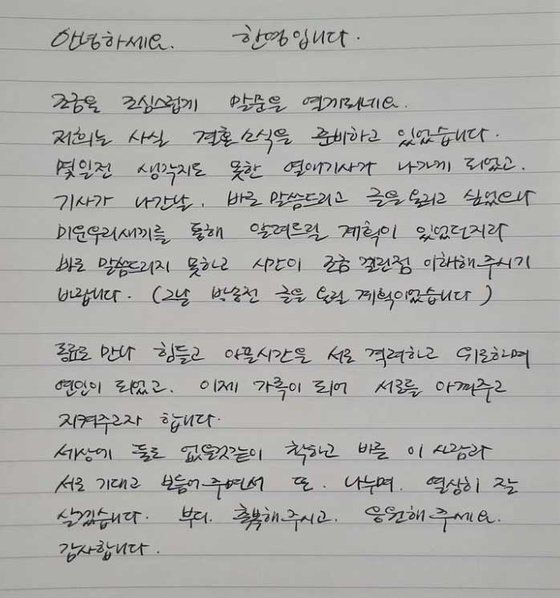 안녕하세요. 한영입니다.
조금은 조심스럽게 말문을 열게되네요.
저희는 사실 결혼소식을 준비하고 있었습니다.
몇일전 생각지도 못한 열애기사가 나가게 되었고.
기사가 나간날. 바로 말씀드리고 글을 올리고 싶었으나
미운우리새끼를 통해 알려드릴 계획이 있었던지라
바로 말씀드리지 못하고 시간이 조금 걸린점 이해해 주시기
바랍니다. (그날 방송전 글을 올릴 계획이었습니다)
동료로 만나 힘들고 아플시간을 서로 격려하고 위로하며
연인이 되었고. 이제 가족이 되어 서로를 아껴주고
지켜주고자 합니다.
세상에 둘도 없을것같이 착하고 바를 이 사람과
서로 기대고 보듬어주면서 또. 나누며. 열심히 잘
살겠습니다. 부디. 축복해주시고. 응원해주세요.
감사합니다.